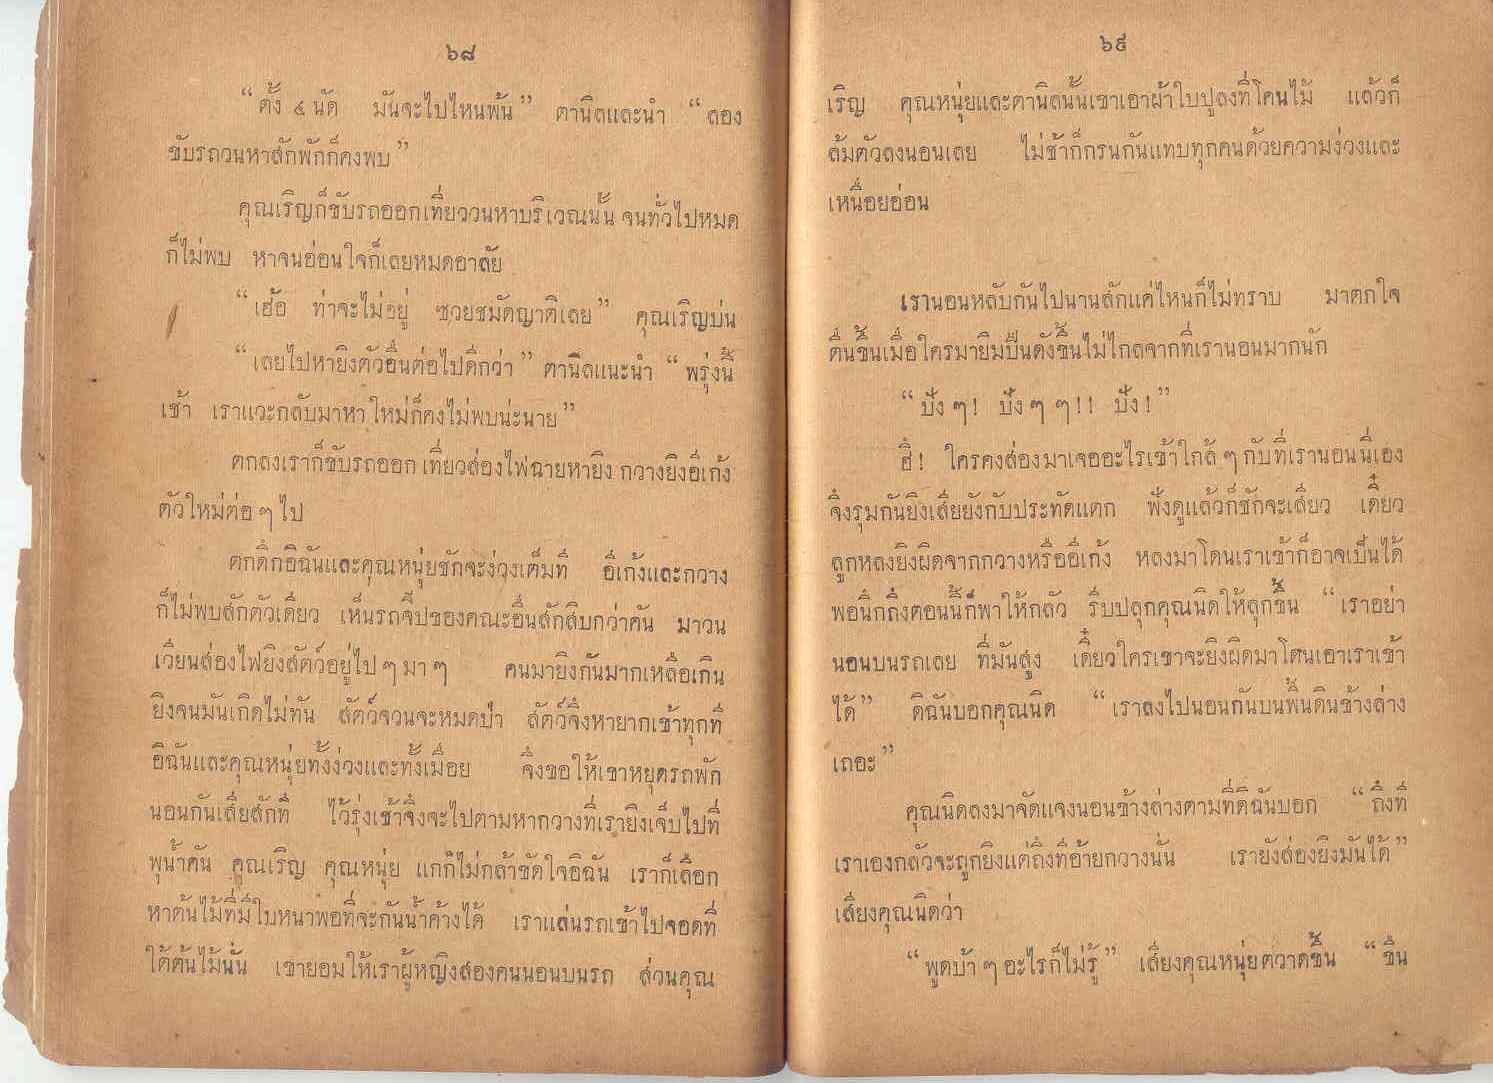 ๖๘
“ ตั้ง ๔ นัด มันจะไปไหนพ้น ” ตานิดและนำ “ ลอง
ขับรถวนหาสักพักก็คงพบ ”
คุณเริญก็ขับรถออกเที่ยววนหาบริเวณนั้น จนทั่วไปหมด
ก็ไม่พบ หาจนอ่อนใจก็เลยหมดอาลัย
“ เฮ้อ ท่าจะไม่อยู่ ซวยชมัดญาติเลย ” คุณเริญบ่น
“ เลยไปหายิงตัวอื่นต่อไปดีกว่า ” ตานิดแนะนำ “ พรุ่งนี้
เช้า เราแวะกลับมาหาใหม่ก็คงไม่พบน่ะนาย ”
ตกลงเราก็ขับรถออก เที่ยวส่องไฟฉายหายิง กวางยิงอีเก้ง
ตัวใหม่ต่อ ๆ ไป
ตกดึกอิฉันและคุณหนุ่ยชักจะง่วงเต็มที อีเก้งและกวาง
ก็ไม่พบสักตัวเดียว เห็นรถจี๊ปของคณะอื่นสักสิบกว่าคัน มาวน
เวียนส่องไฟยิงสัตว์อยู่ไป ๆ มา ๆ คนมายิงกันมากเหลือเกิน
ยิงจนมันเกิดไม่ทัน สัตว์จวนจะหมดป่า สัตว์จึงหายากเข้าทุกที
อิฉันและคุณหนุ่ยทั้งง่วงและทั้งเมื่อย จึงขอให้เขาหยุดรถพัก
นอนกันเสียสักที ไว้รุ่งเช้าจึงจะไปตามหากวางที่เรายิงเจ็บไปที่
พุน้ำคัน คุณเริญ คุณหนุ่ย แกก็ไม่กล้าขัดใจอิฉัน เราก็เลือก
หาต้นไม้ที่มีใบหนาพอที่จะกันน้ำค้างได้ เราแล่นรถเข้าไปจอดที่
ใต้ต้นไม้นั่น เขายอมให้เราผู้หญิงสองคนนอนบนรถ ส่วนคุณ
๖๙
เริญ คุณหนุ่ยและตานิดนั้นเขาเอาผ้าใบปูลงที่โคนไม้ แล้วก็
ล้มตัวลงนอนเลย ไม่ช้าก็กรนกันแทบทุกคนด้วยความง่วงและ
เหนื่อยอ่อน
เรานอนหลับกันไปนานสักแค่ไหนก็ไม่ทราบ มาตกใจ
ตื่นขึ้นเมื่อใครมายิมปืนดังขึ้นไม่ไกลจากที่เรานอนมากนัก
“ ปัง ๆ ! ปัง ๆ ๆ ! ! ปัง ! ”
ฮี้ ! ใครคงส่องมาเจออะไรเข้าใกล้ ๆ กับที่เรานอนนี่เอง
จึงรุมกันยิงเสียยังกับประทัดแตก ฟังดูแล้วก็ชักจะเสียว เดี๋ยว
ลูกหลงยิงผิดจากกวางหรืออีเก้ง หลงมาโดนเราเข้าก็อาจเป็นได้
พอนึกถึงตอนนี้ก็พาให้กลัว รีบปลุกคุณนิดให้ลุกขึ้น “ เราอย่า
นอนบนรถเลย ที่มันสูง เดี๋ยวใครเขาจะยิงผิดมาโดนเอาเราเข้า
ได้ ” ดิฉันบอกคุณนิด “ เราลงไปนอนกันบนพื้นดินข้างล่าง
เถอะ ”
คุณนิดลงมาจัดแจงนอนข้างล่างตามที่ดิฉันบอก “ ถึงที
เราเองกลัวจะถูกยิงแต่ถึงทีอ้ายกวางนั่น เรายังส่องยิงมันได้ ”
เสียงคุณนิดว่า
“ พูดบ้า ๆ อะไรก็ไม่รู้ ” เสียงคุณหนุ่ยตวาดขึ้น “ ขืน